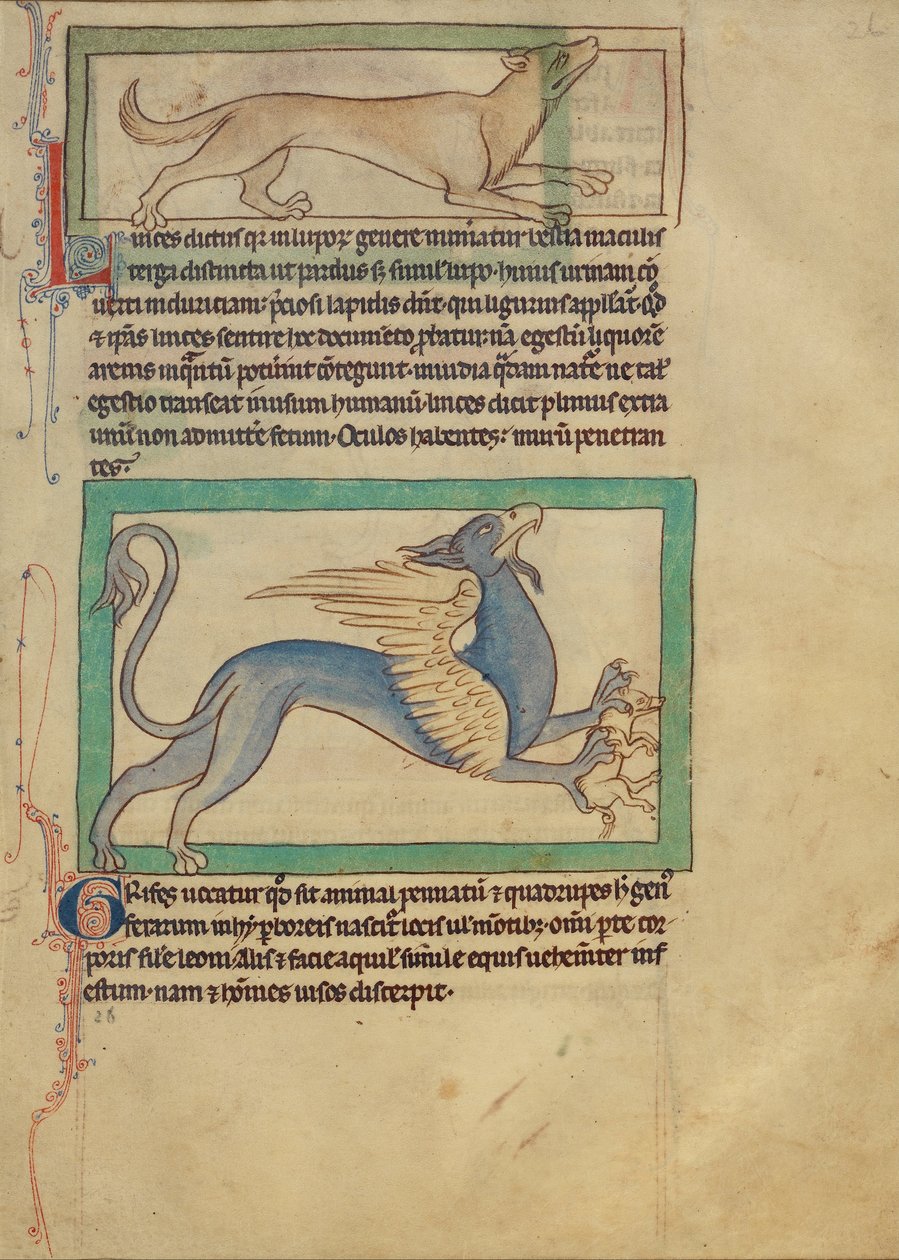 26
Linces dictus qr̄ in luporꝝ genere numatur bestia maculis
terga distincta ut pardus sꝫ simił lupo· huius urinam cō
uerti in duriciam· p̄ciosi lapidis dn̄t· qui ligurius appłłat᷑· Qd̄
⁊ ip̄as linces sentire hoc documēto ꝓbatur· nā egestū liquorē
arenis inq̄ntū potiūnt cōtegunt· inuidia q̄dam nat᷑e ne tał
egestio transeat in usum humanū· linces dicit plinius extra
unū non admitt᷑e fetum· Oculos habentes· murū penetran
tes·
GRifes uocatur qd̄ sit animal pennatū ⁊ quadrupes h̄ gen᷒
ferarum in hyꝑboreis nascit᷑ locis uł mōtibꝫ· om̄i ꝑte cor-
poris siłe leoni Alis ⁊ facie aquił simile equis uehem̄ter inf
estum· nam ⁊ hōmes uisos discerpit·
26